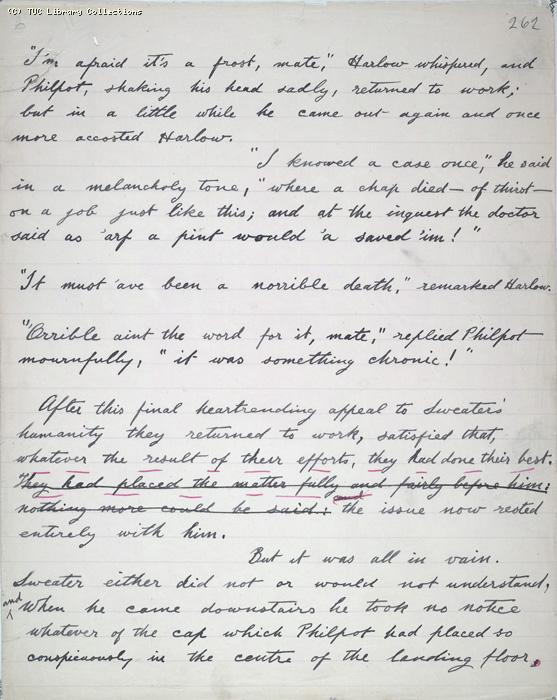 (C) TUC Library Collections
262
"I'm afraid it's a frost, mate," Harlow whispered, and
Philpot, shaking his head sadly, returned to work;
but in a little while he came out again and once
more accosted Harlow.
"I knowed a case once," he said
in a melancholy tone, "where a chap died — of thirst —
on a job just like this; and at the inquest the doctor
said as 'arf a pint would 'a saved 'im!"
"It must 'ave been a norrible death," remarked Harlow.
"'Orrible aint the word for it, mate," replied Philpot
mournfully, "it was something chronic!"
After this final heartrending appeal to Sweater's
humanity they returned to work, satisfied that,
whatever the result of their efforts, they had done their best.
They had placed the matter fully and fairly before him:
nothing more could be said: and the issue now rested
entirely with him.
But it was all in vain.
Sweater either did not or would not understand,
and When he came downstairs he took no notice
whatever of the cap which Philpot had placed so
conspicuously in the centre of the landing floor.